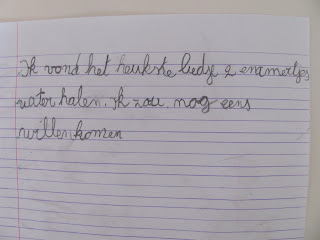 Ik vond het heukste liedje 2 enmertjes
water halen. Ik zou. nog eens
willenkomen